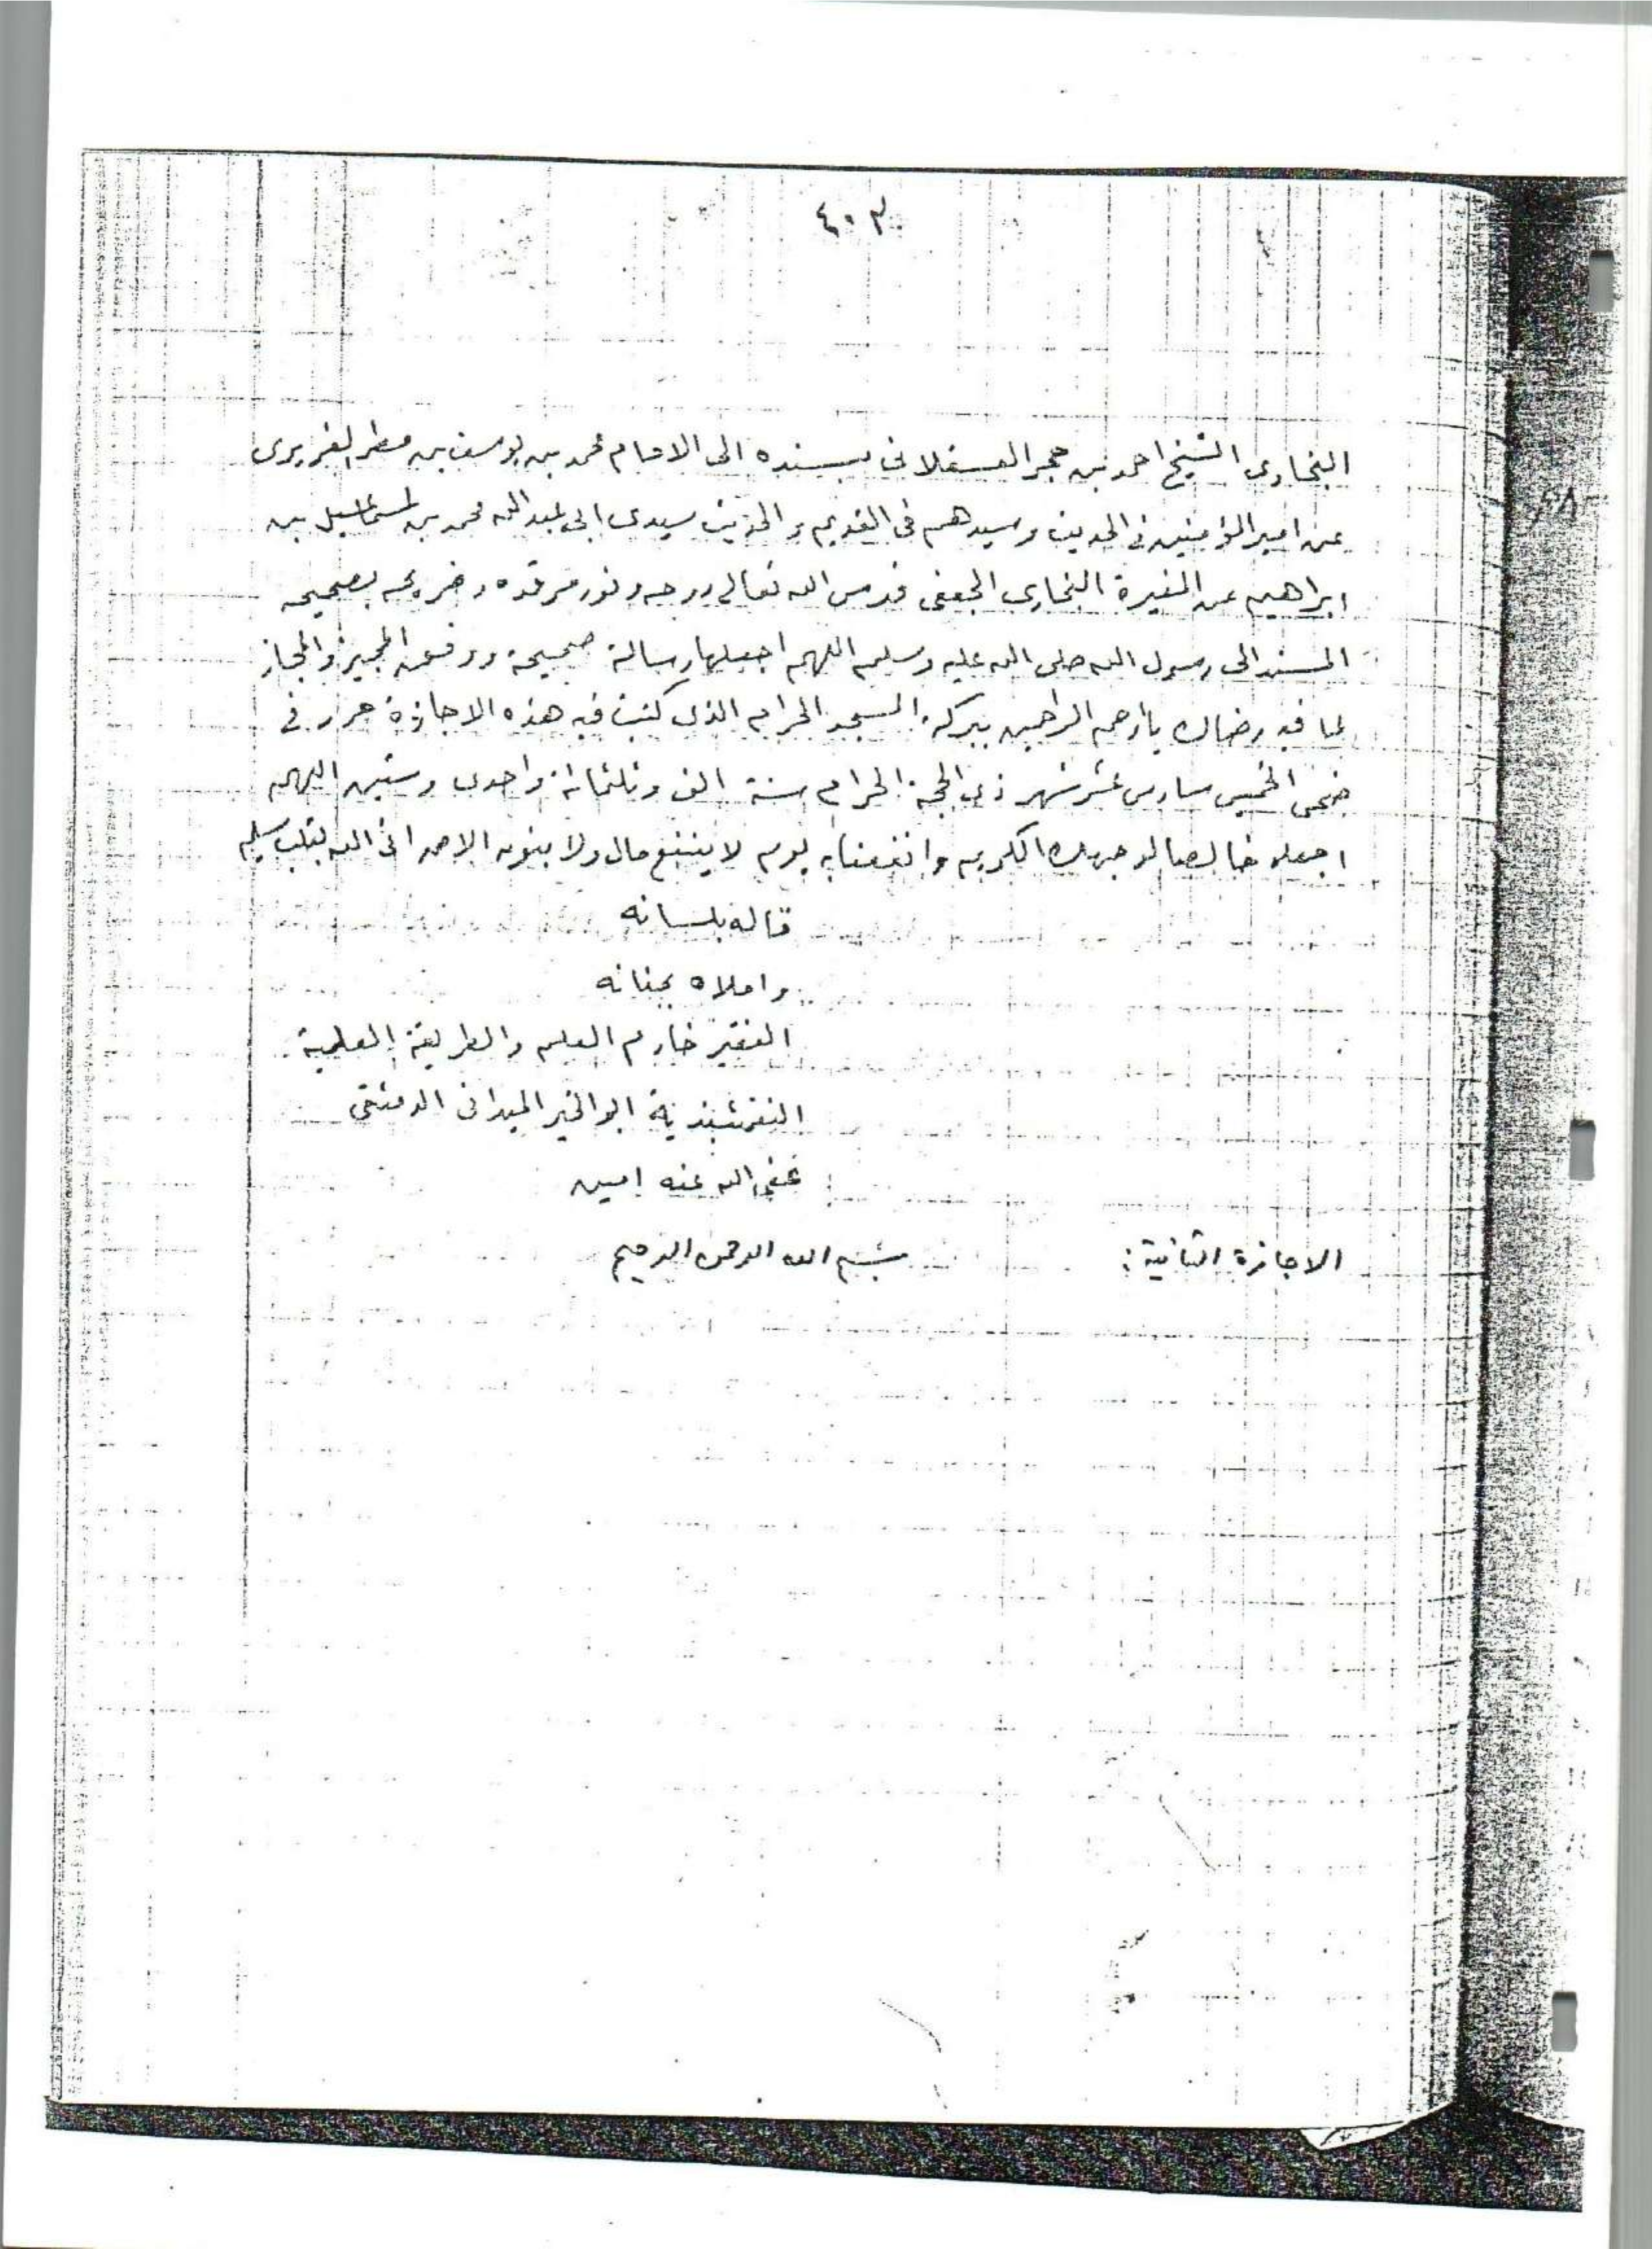 ٤٠٣
البخاري الشيخ احمد بن حجر العسقلاني بسنده الى الامام محمد بن يوسف بن مطر الفربرى
عن امير المؤمنين في الحديث وسيدهم في القديم والحديث سيدى ابى عبد الله محمد بن اسماعيل بن
ابراهيم عن المغيرة البخارى الجعفى قدس الله تعالى روحه ونور مرقده وضريحه بصحيحه
المسند الى رسول الله صلى الله عليه وسلم اللهم اجعلها رسالة صحيحة ووفق المجيز والمجاز
لما فيه رضاك يا أرحم الراحمين ببركة المسجد الحرام الذى كتبت فيه هذه الاجازة حرر في
ضحى الخميس سادس عشر شهر ذى الحجة الحرام سنة الف وثلثمائة واحدى وستين اللهم
اجعله خالصا لوجهك الكريم وانفعنا به يوم لا ينفع مال ولا بنون الا من اتى الله بقلب سليم
قاله بلسانه
واملاه بجنانه
الفقير خادم العلم والطريقة العلية
النقشبندية ابو الخير الميدانى الدمشقى
عفى الله عنه امين
الاجازة الثانية: بسم الله الرحمن الرحيم